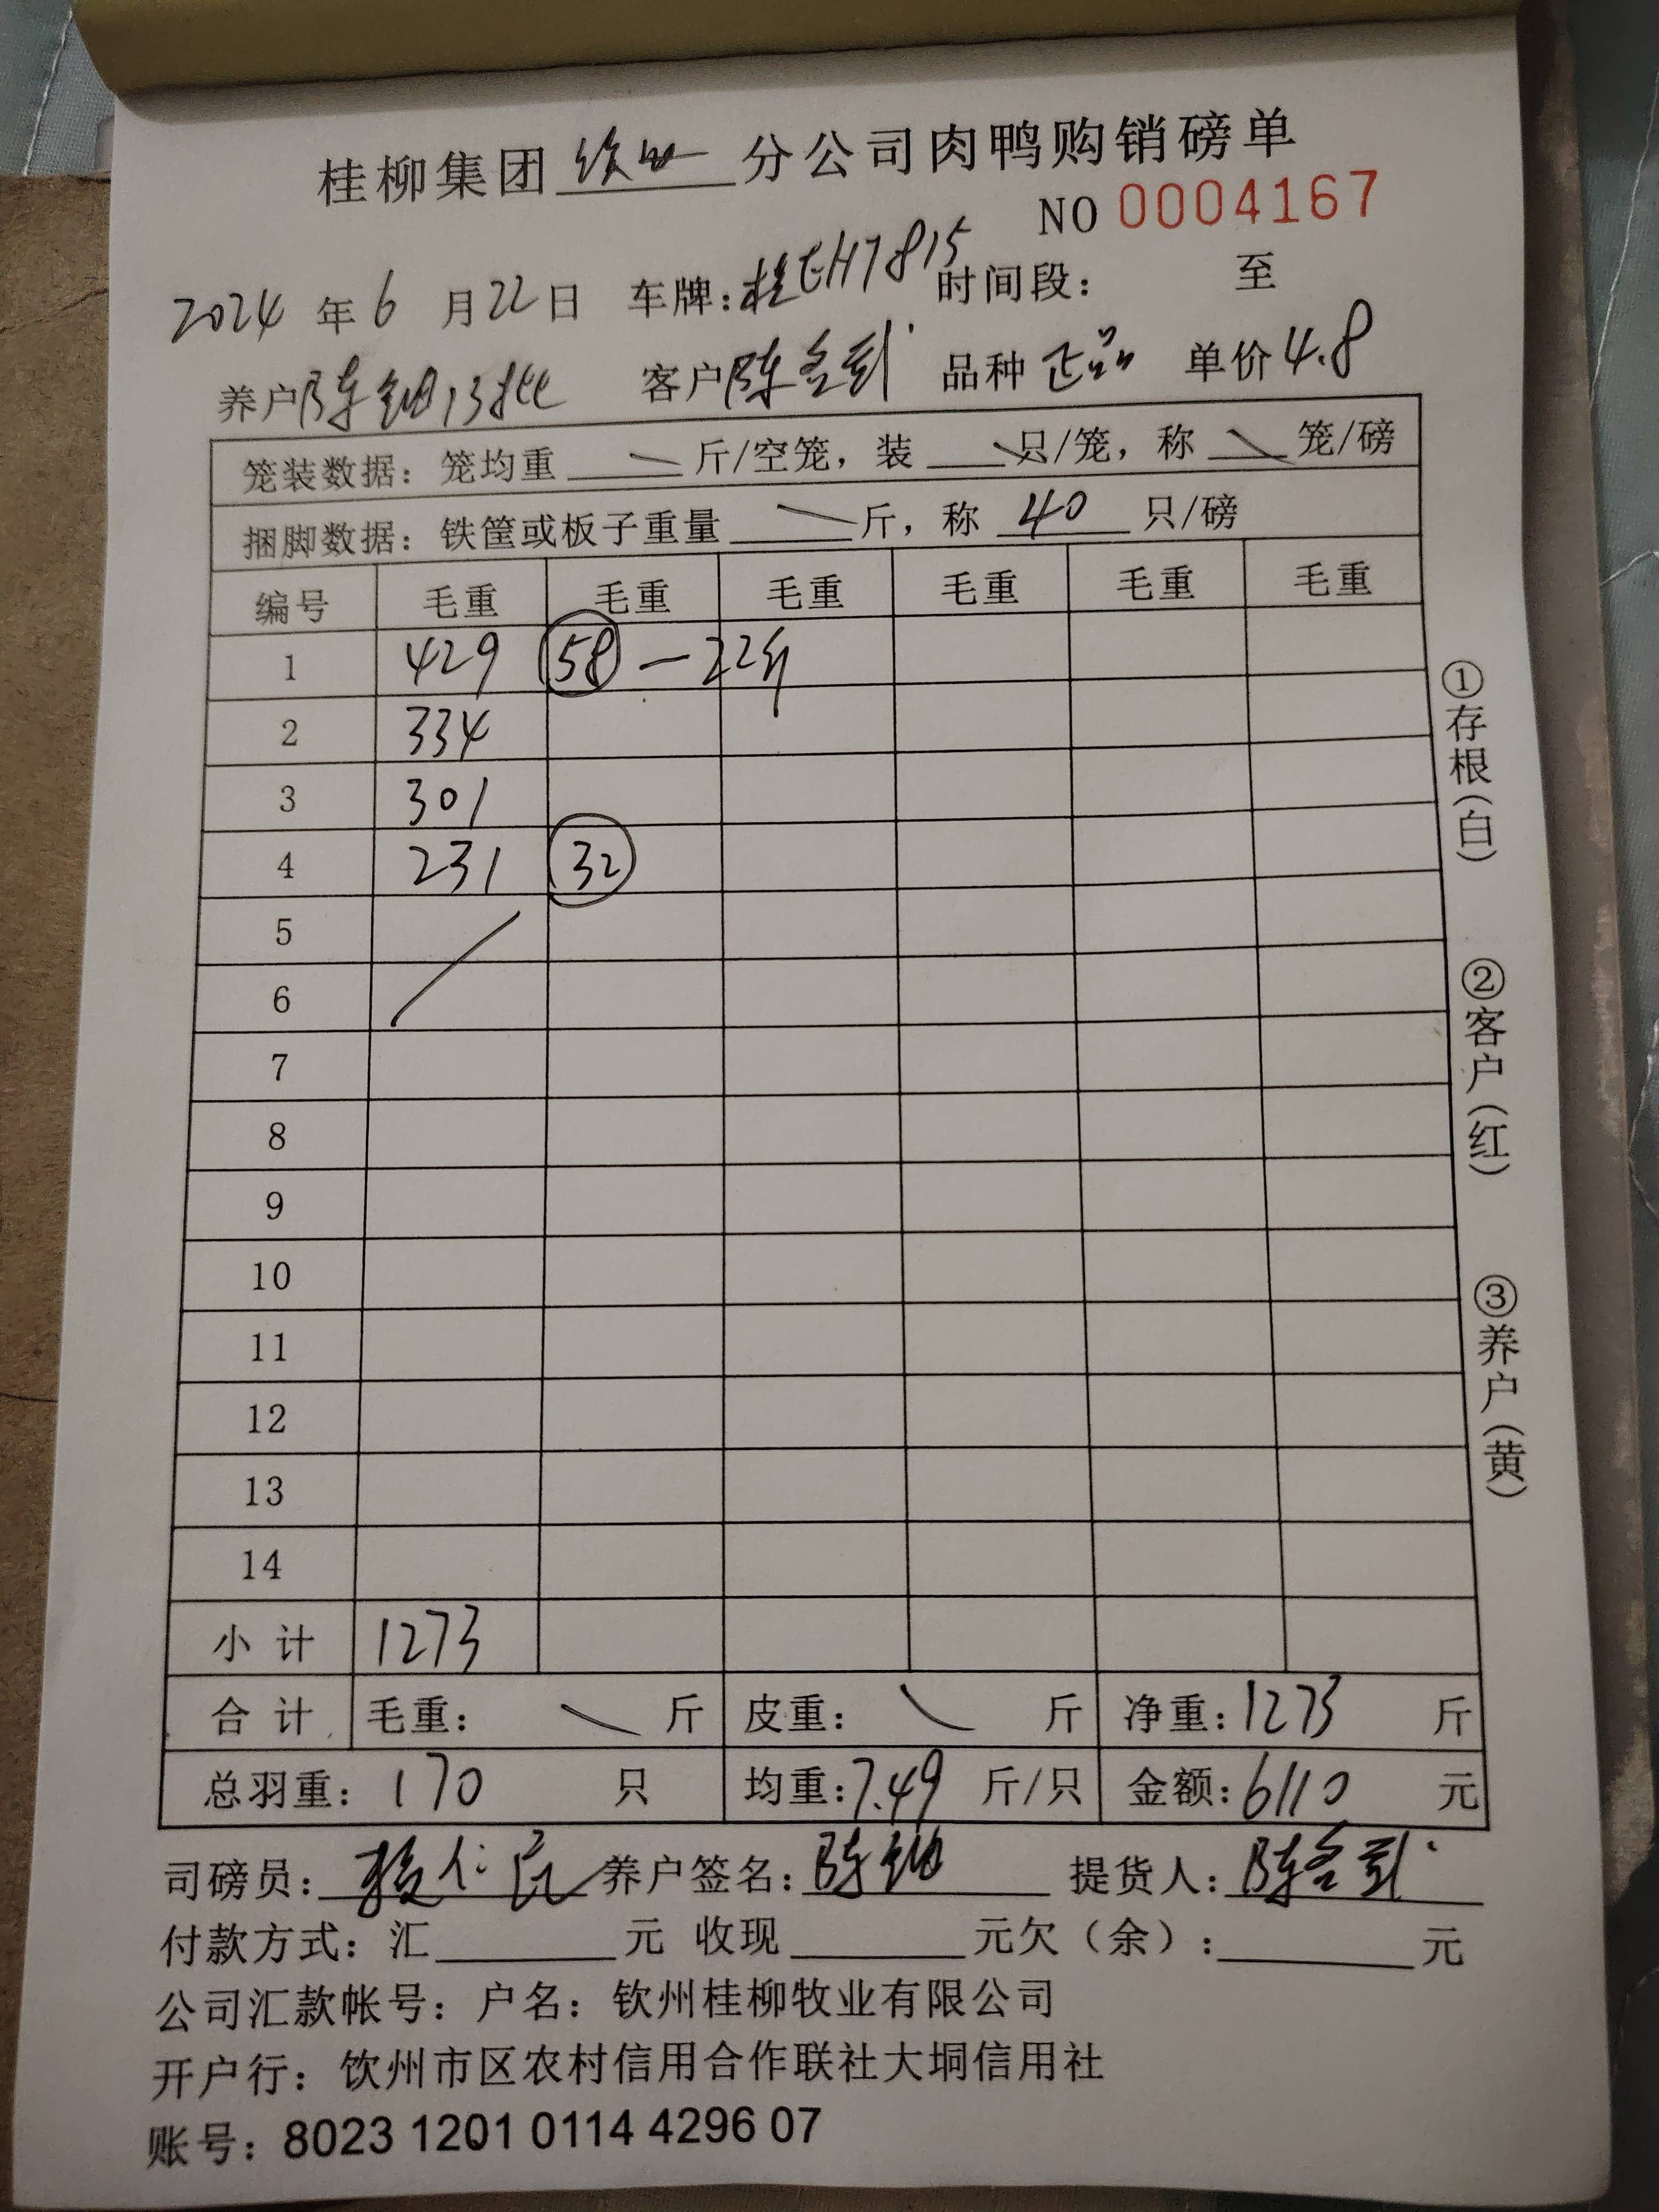 桂柳集团钦州分公司肉鸭购销磅单
NO 0004167
2024年6月22日 车牌:桂EH7815 时间段: 至
养户陈钿13批 客户陈 品种正品 单价4.8
笼装数据: 笼均重 斤/空笼, 装 只/笼, 称 笼/磅
捆脚数据: 铁筐或板子重量 斤, 称 40 只/磅
编号 毛重 毛重 毛重 毛重 毛重 毛重
1 429 58 — 22斤
2 334
3 301
4 231 32
5
6
7
8
9
10
11
12
13
14
小计 1273
合计 毛重: 斤 皮重: 斤 净重: 1273 斤
总羽重: 170 只 均重: 7.49 斤/只 金额: 6110 元
司磅员: 养户签名: 陈钿 提货人: 陈
付款方式: 汇 元 收现 元欠(余): 元
公司汇款帐号: 户名: 钦州桂柳牧业有限公司
开户行: 钦州市区农村信用合作联社大垌信用社
账号: 8023 1201 0114 4296 07
①存根(白)
②客户(红)
③养户(黄)